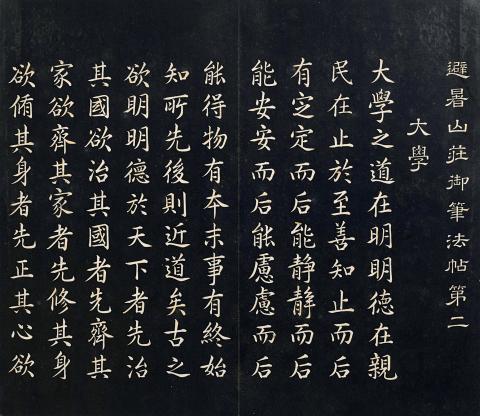 避暑山莊御筆法帖第二
大學
大學之道在明明德在親
民在止於至善知止而后
有定定而后能静静而后
能安安而后能慮慮而后
能得物有本末事有終始
知所先後則近道矣古之
欲明明德於天下者先治
其國欲治其國者先齊其
家欲齊其家者先修其身
欲脩其身者先正其心欲